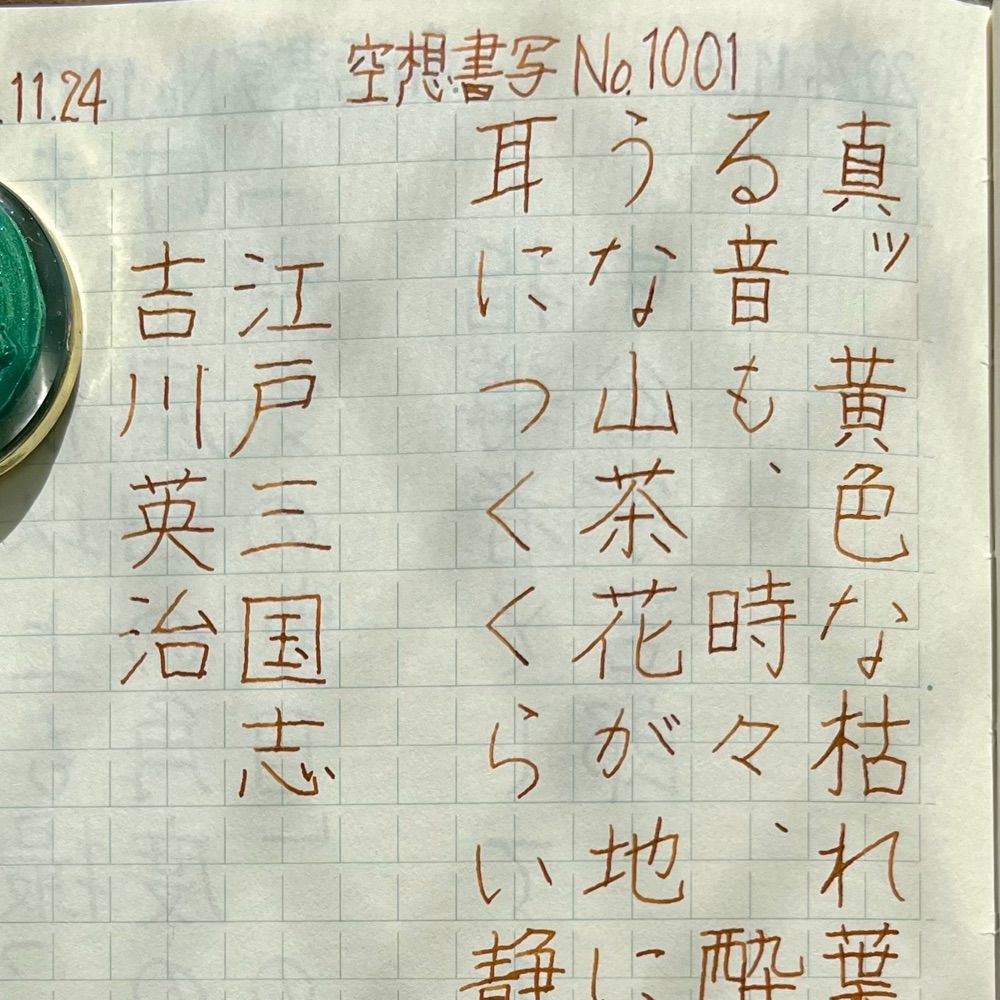 空想書写 No.1001
.11.24
真ッ黄色な枯れ葉
る音も、時々、酔
うな山茶花が地に
耳につくくらい静
江戸三国志
吉川英治